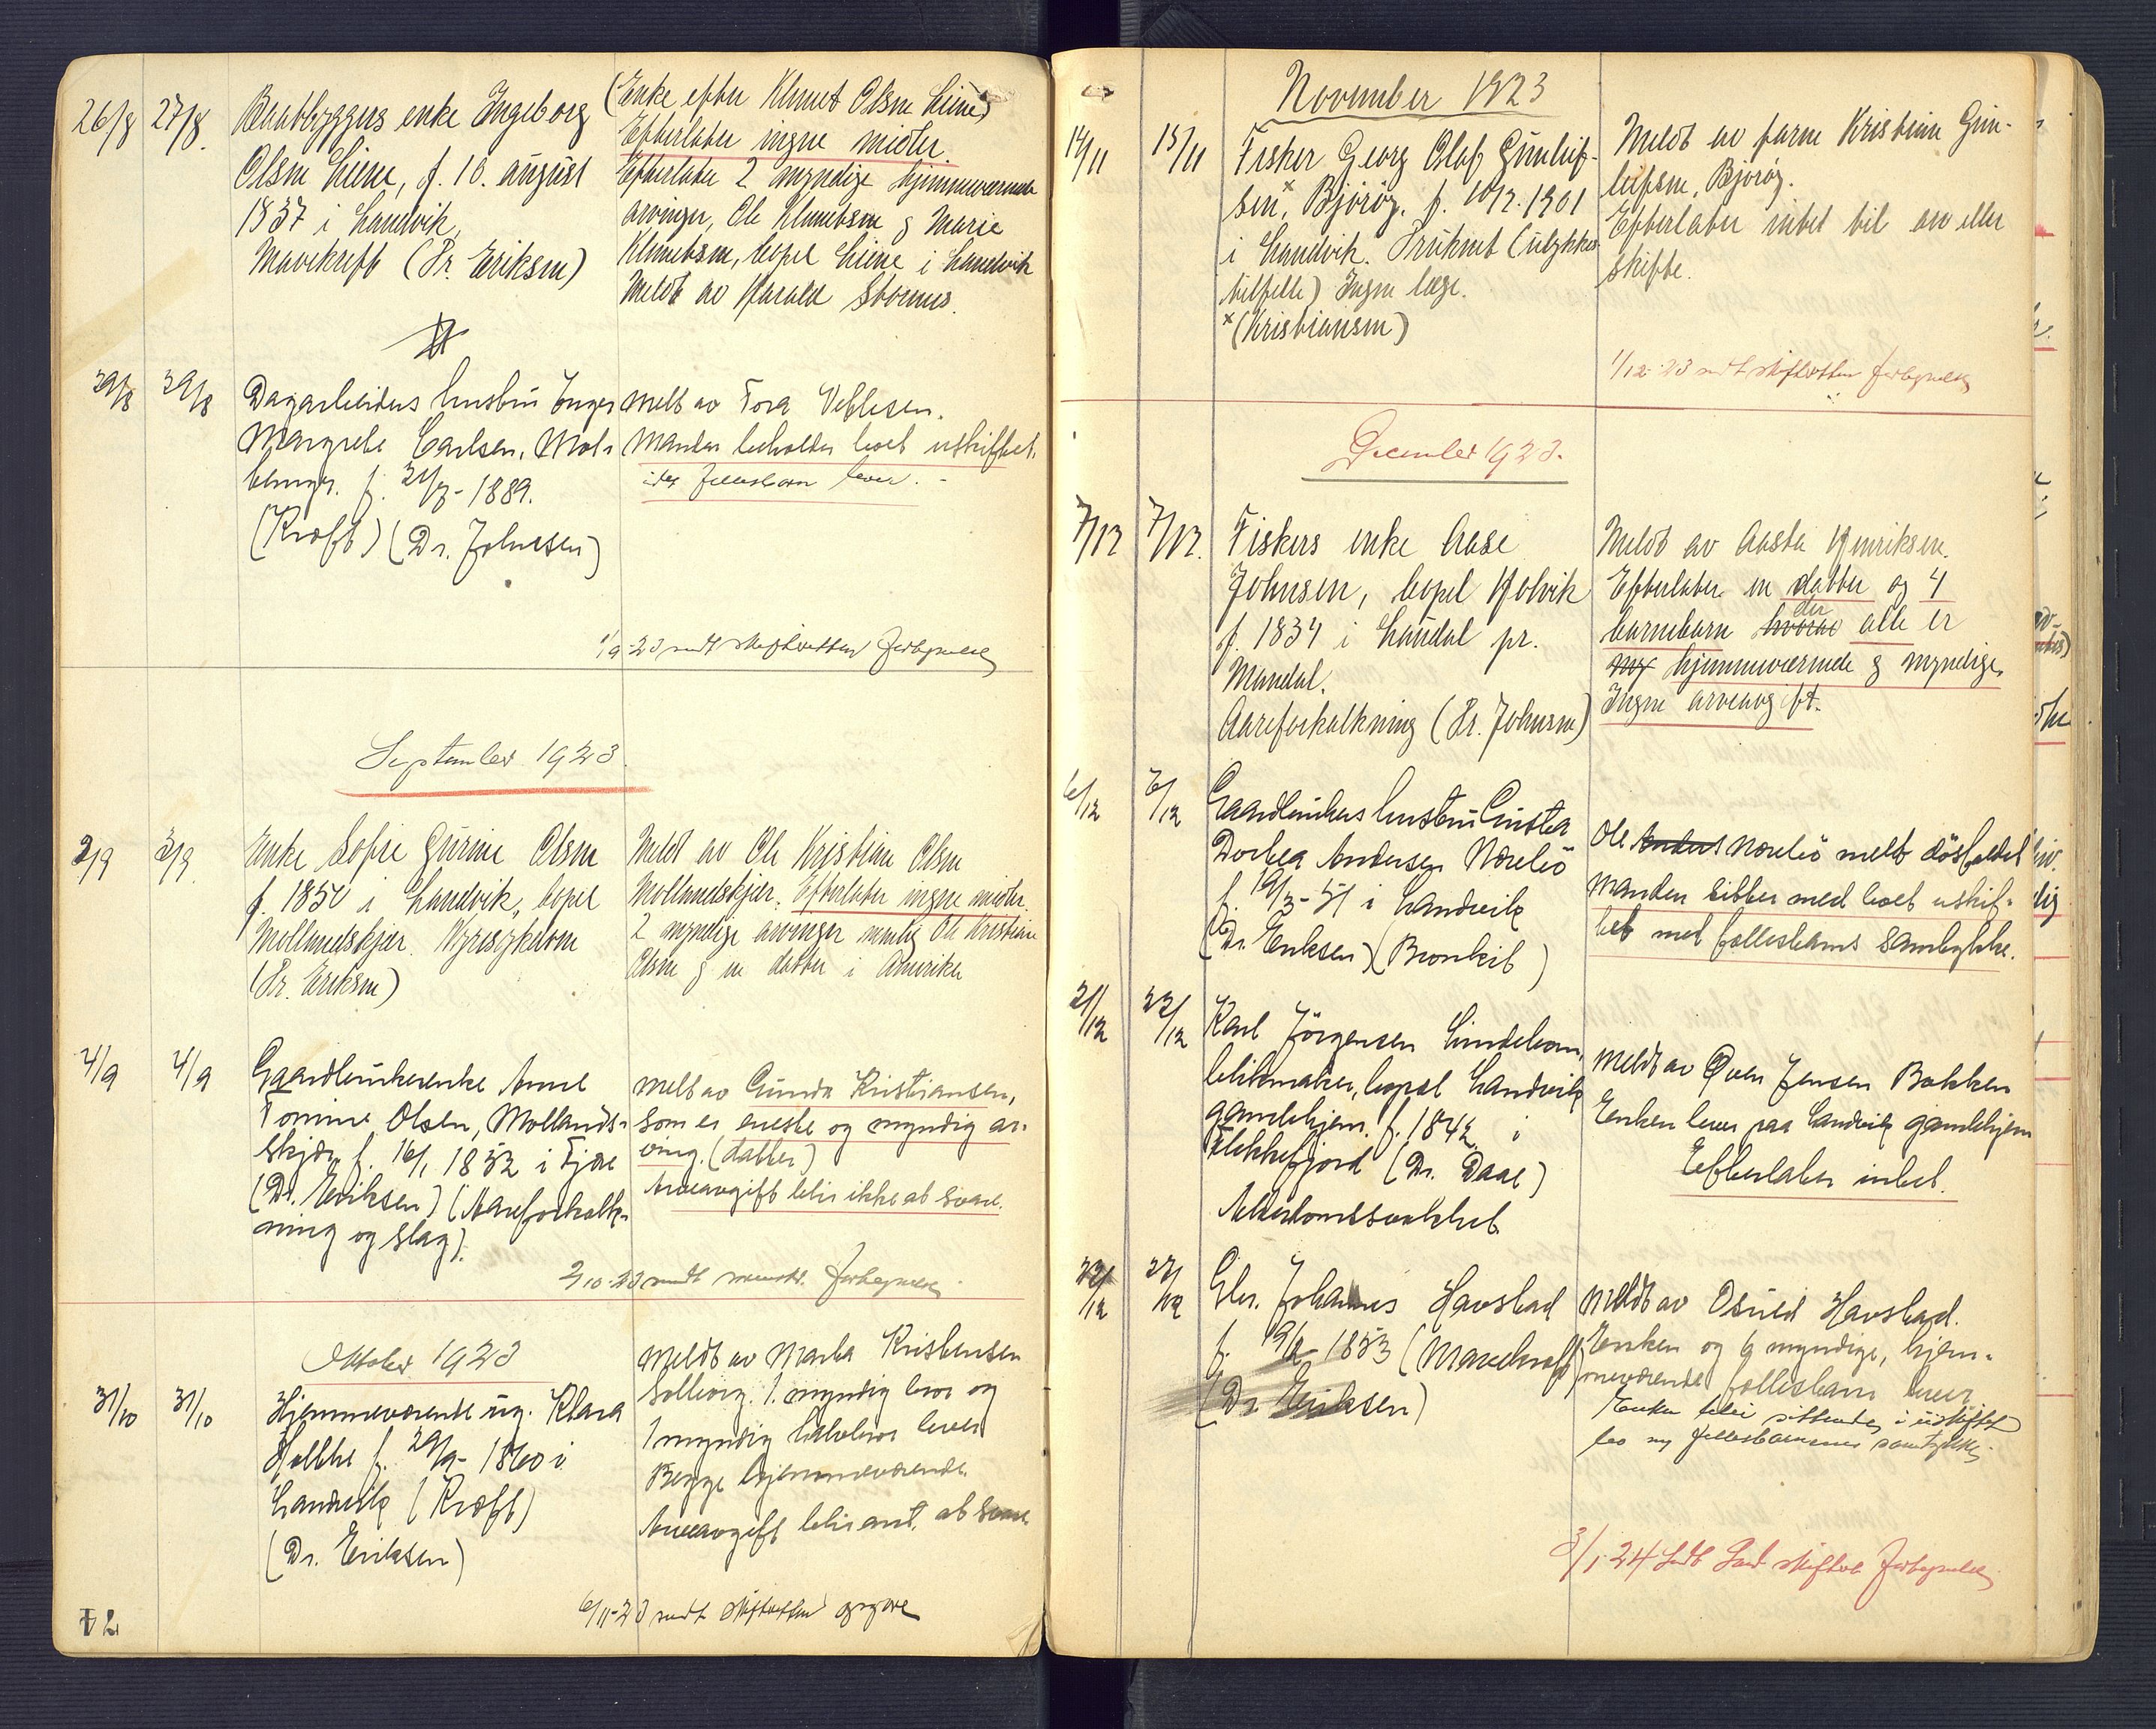 26/8 27/8. Baatbyggers enke Ingeborg
Olsen Liene, f. 10. august
1837 i Landvik,
Mavekreft (Dr. Eriksen)
(Enke efter Knut Olsen Liene)
Efterlater ingen midler
Efterlater 2 myndige hjemmeværende
arvinger, Ole Knutsen & Marie
Knutsen, bopæl Liene i Landvik
Meldt av Harald Stormes.
29/8 29/8 Dagarbeiders hustru Inger
Margrete Carlsen, Mol-
f. 21/8-1889.
(Kræft) (Dr. Johnsen)
Melt av Tora Vetlesen.
Manden beholder boet uskiftet.
fellesbarn lever.
1/9-23 sendt skifteretten fortegnelse
September 1923.
2/9 3/9 Enke Sofie Gurine Olsen
f. 1850 i Landvik, bopæl
Mollandskjær. Nyresykdom
(Dr. Eriksen)
Meldt av Ole Kristian Olsen
Mollandskjær. Efterlater ingen midler.
2 myndige arvinger nemlig Ole Kristian
Olsen & en datter i Amerika
4/9 4/9 Gaardbrukerenke Anne
Tomine Olsen, Mollands-
skjær, f. 16/1 1852 i Fjære
(Dr. Eriksen) (Aareforkalk-
ning og slag).
Melt av Gunda Kristiansen,
som er eneste og myndig ar-
ving. (datter)
Arveavgift blir ikke at svare.
2/10-23 sendt fortegnelse
Oktober 1923
31/10 31/10 Hjemmeværende ug. Klara
Holtbe f. 29/9-1860 i
Landvik (Kræft)
(Dr. Eriksen)
Meldt av Marta Kristensen
Solborg. 1 myndig bror og
1 myndig halvbror lever
Begge hjemmeværende.
Arveavgift blir ant. at svare.
6/11-23 sendt skifteretten opgave
November 1923
14/11 15/11 Fisker Georg Olaf Gunleif-
sen, x Bjorøy. f. 10/2.1901
i Landvik. Druknet (ulykkes-
tilfelle) Ingen læge.
x (Kristiansen)
Meldt av faren Kristian Gun-
leifsen, Bjorøy.
Efterlater intet til arv eller
skifte.
1/12-23 sendt skifteretten fortegnelse
December 1923.
7/12 7/12. Fiskers enke Aase
Johnsen, bopæl Holvik
f. 1834 i Laudal pr.
Mandal.
Aareforkalkning (Dr. Johnsen)
Meldt av Aasta Henriksen.
Efterlater en datter og 4
barnebarn hvorav der alle er
myn hjemmeværende & myndige.
Ingen arveavgift.
6/12 6/12 Gaardbrukers hustru
Dorthea Andersen Nærebø
f. 19/3-51 i Landvik
(Dr. Eriksen) (Bronkit)
Ole Anders Nærebø melt dødsfaldet
Manden sitter med boet uskif-
tet med fellesbarns samtykke.
21/12 22/12 Karl Jörgensen Lindebom,
blikmaker, bopæl Landvik
gamlehjem. f. 1842 i
Flekkefjord (Dr. Daae)
Alderdomssvakhet
Meldt av Öven Jensen Bakken
Enken lever paa Landvik gamlehjem
Efterlater intet.
22/12 22/12 Gbr. Johannes Havstad
f. 1853 (Mavekræft)
(Dr. Eriksen)
Meldt av Osvald Havstad.
Enken og 6 myndige, hjem-
meværende fellesbarn lever
Enken blir sittende i uskiftet
bo m/ fellesbarnenes samtykke.
3/1-24 fortegnelse